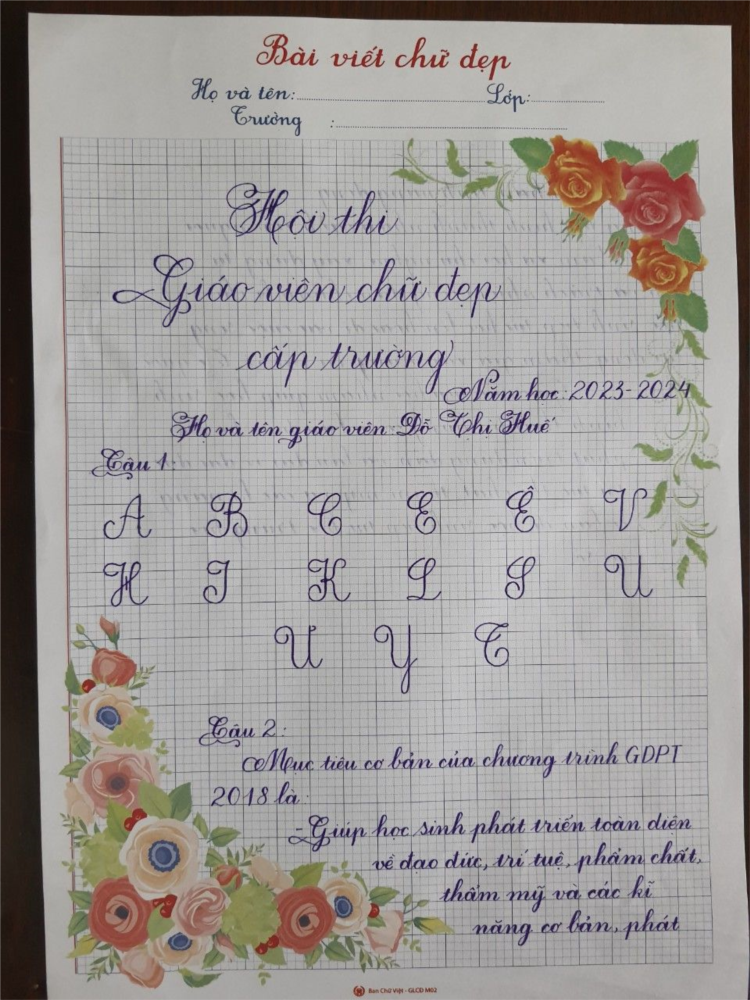 Bài viết chữ đẹp
Họ và tên: Lớp:
Trường :
Hội thi
Giáo viên chữ đẹp
cấp trường
Năm học: 2023-2024
Họ và tên giáo viên: Đỗ Thị Huế
Câu 1
A B C E Ê V
H I K L S U
Ư Y T
Câu 2:
Mục tiêu cơ bản của chương trình GDPT
2018 là:
- Giúp học sinh phát triển toàn diện
về đạo đức, trí tuệ, phẩm chất,
thẩm mỹ và các kĩ
năng cơ bản, phát
Ban Chữ Việt - GLCD M02